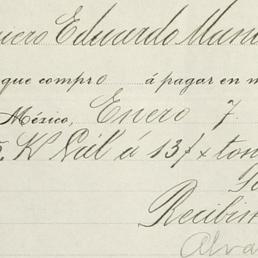 uero Eduardo Man
que compro á pagar en m
México, Enero 7
K Sál á 13 f x ton
Recibi
Alva